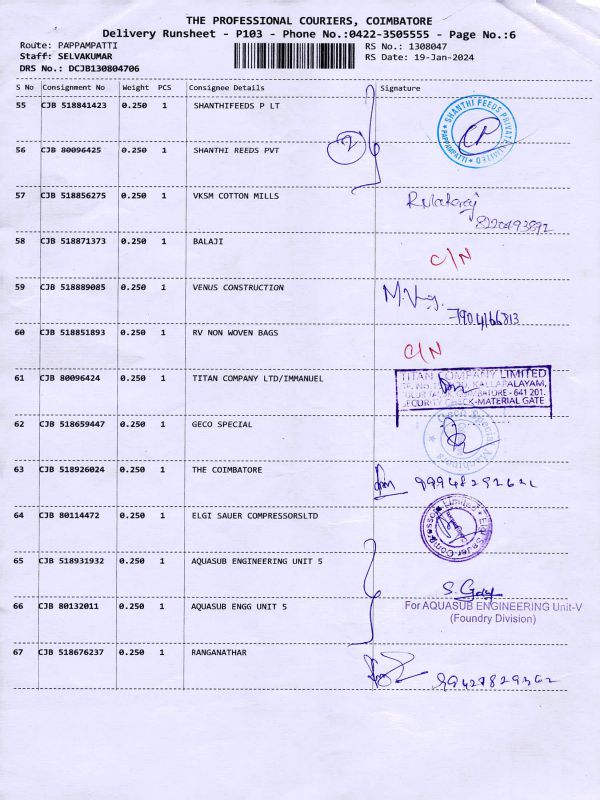 THE PROFESSIONAL COURIERS, COIMBATORE
Delivery Runsheet - P103 - Phone No.:0422-3505555 - Page No.:6
Route: PAPPAMPATTI RS No.: 1308047
Staff: SELVAKUMAR RS Date: 19-Jan-2024
DRS No.: DCJB130804706
S No Consignment No Weight PCS Consignee Details Signature
55 CJB 518841423 0.250 1 SHANTHIFEEDS P LT
SHANTHI FEEDS PRIVATE LIMITED * PAPPAMPATTI *
56 CJB 80096425 0.250 1 SHANTHI REEDS PVT
2
57 CJB 518856275 0.250 1 VKSM COTTON MILLS
8220493892
58 CJB 518871373 0.250 1 BALAJI C/N
59 CJB 518889085 0.250 1 VENUS CONSTRUCTION
7904166813
60 CJB 518851893 0.250 1 RV NON WOVEN BAGS C/N
61 CJB 80096424 0.250 1 TITAN COMPANY LTD/IMMANUEL
TITAN COMPANY LIMITED
KALLAPALAYAM,
COIMBATORE - 641 201.
SECURITY CHECK-MATERIAL GATE
62 CJB 518659447 0.250 1 GECO SPECIAL
63 CJB 518926024 0.250 1 THE COIMBATORE
64 CJB 80114472 0.250 1 ELGI SAUER COMPRESSORSLTD
Elgi Sauer Compressors Limited
65 CJB 518931932 0.250 1 AQUASUB ENGINEERING UNIT 5
66 CJB 80132011 0.250 1 AQUASUB ENGG UNIT 5
For AQUASUB ENGINEERING Unit-V
(Foundry Division)
67 CJB 518676237 0.250 1 RANGANATHAR
99427829362